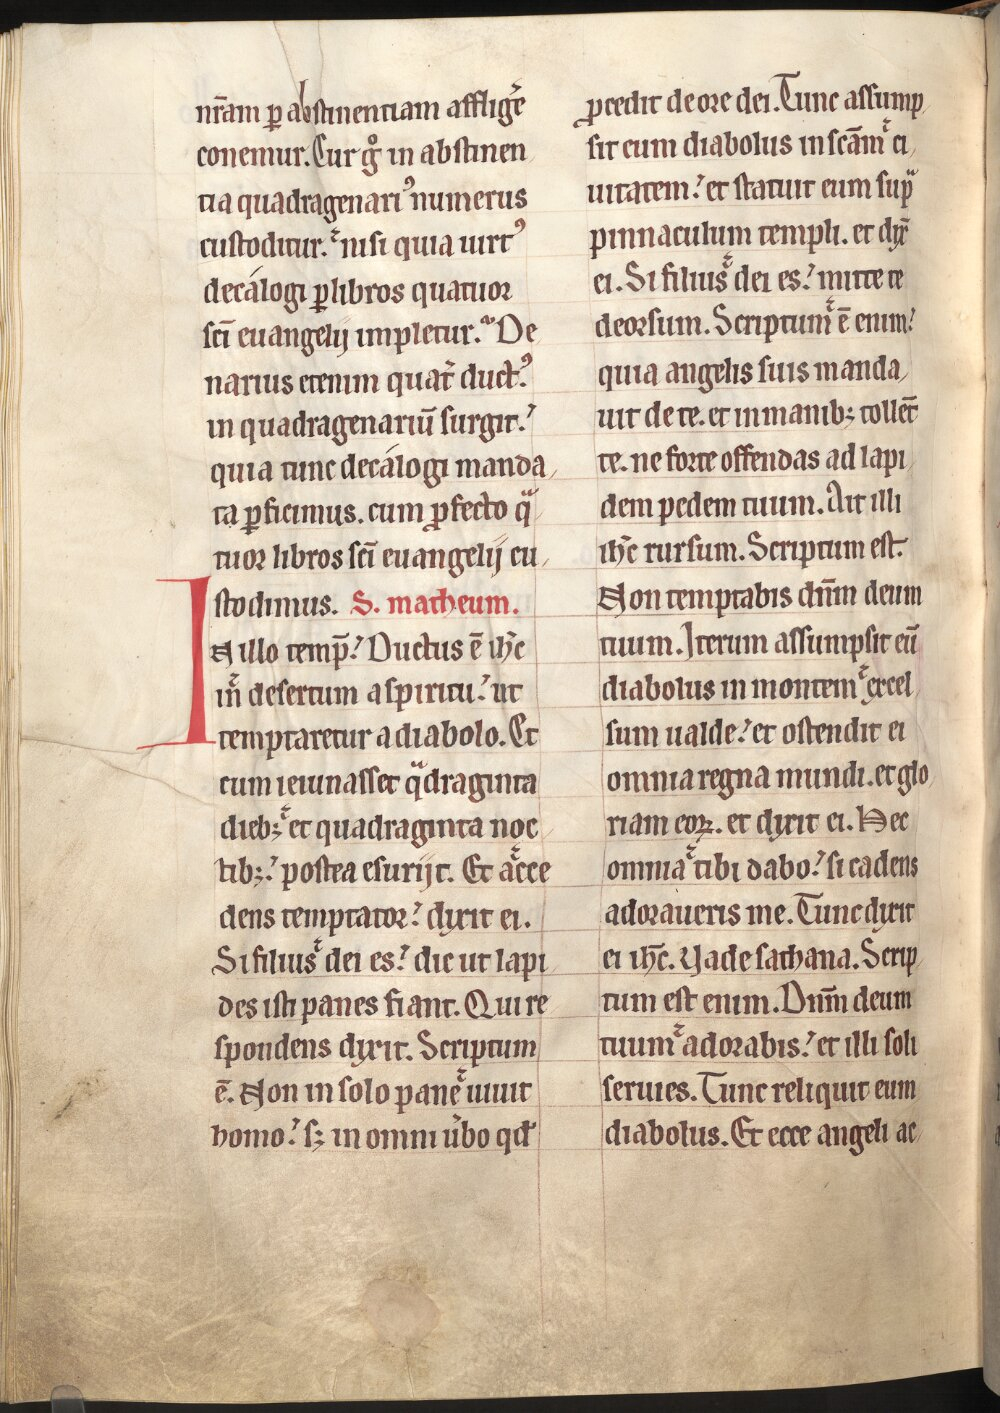 nr̄am ꝑ abstinentiam affligẽ
conemur. Cur gͦ in abstinen
tia quadragenariꝰ numerus
custoditur. nisi quia uirtꝰ
decálogi ꝑ libros quatuor
sc̄i euangelij impletur. De
narius etenim quat̉ ductꝰ.
in quadragenariū surgit.
quia tunc decálogi manda
ta ꝑficimus. cum ꝓfecto qᷓ
tuor libros sc̄i euangelij cu
stodimus. S. matheum.
In illo temp̄. Ductus ē ih̄c
in desertum a spiritu. ut
temptaretur a diabolo. Et
cum ieiunasset qᷓdraginta
diebꝫ et quadraginta noc
tibꝫ. postea esurijt. Et acce
dens temptator. dixit ei.
Si filius dei es. dic ut lapi
des isti panes fiant. Qui re
spondens dixit. Scriptum
ē. Non in solo pane uiuit
homo. sꝫ in omni ūbo qđ
ꝓcedit de ore dei. Tunc assump
sit eum diabolus in sc̄am ci
uitatem. et statuit eum supᷓ
pinnaculum templi. et dix̄
ei. Si filius dei es. mitte te
deorsum. Scriptum ē enim.
quia angelis suis manda
uit de te. et in manibꝫ tollēt
te. ne forte offendas ad lapi
dem pedem tuum. Ait illi
ih̄c rursum. Scriptum est.
Non temptabis dn̄m deum
tuum. Iterum assumpsit eū
diabolus in montem excel
sum ualde. et ostendit ei
omnia regna mundi. et glo
riam eoꝝ. et dixit ei. Hec
omnia tibi dabo. si cadens
adoraueris me. Tunc dixit
ei ih̄c. Vade sathana. Scrip
tum est enim. Dn̄m deum
tuum adorabis. et illi soli
seruies. Tunc reliquit eum
diabolus. Et ecce angeli ac